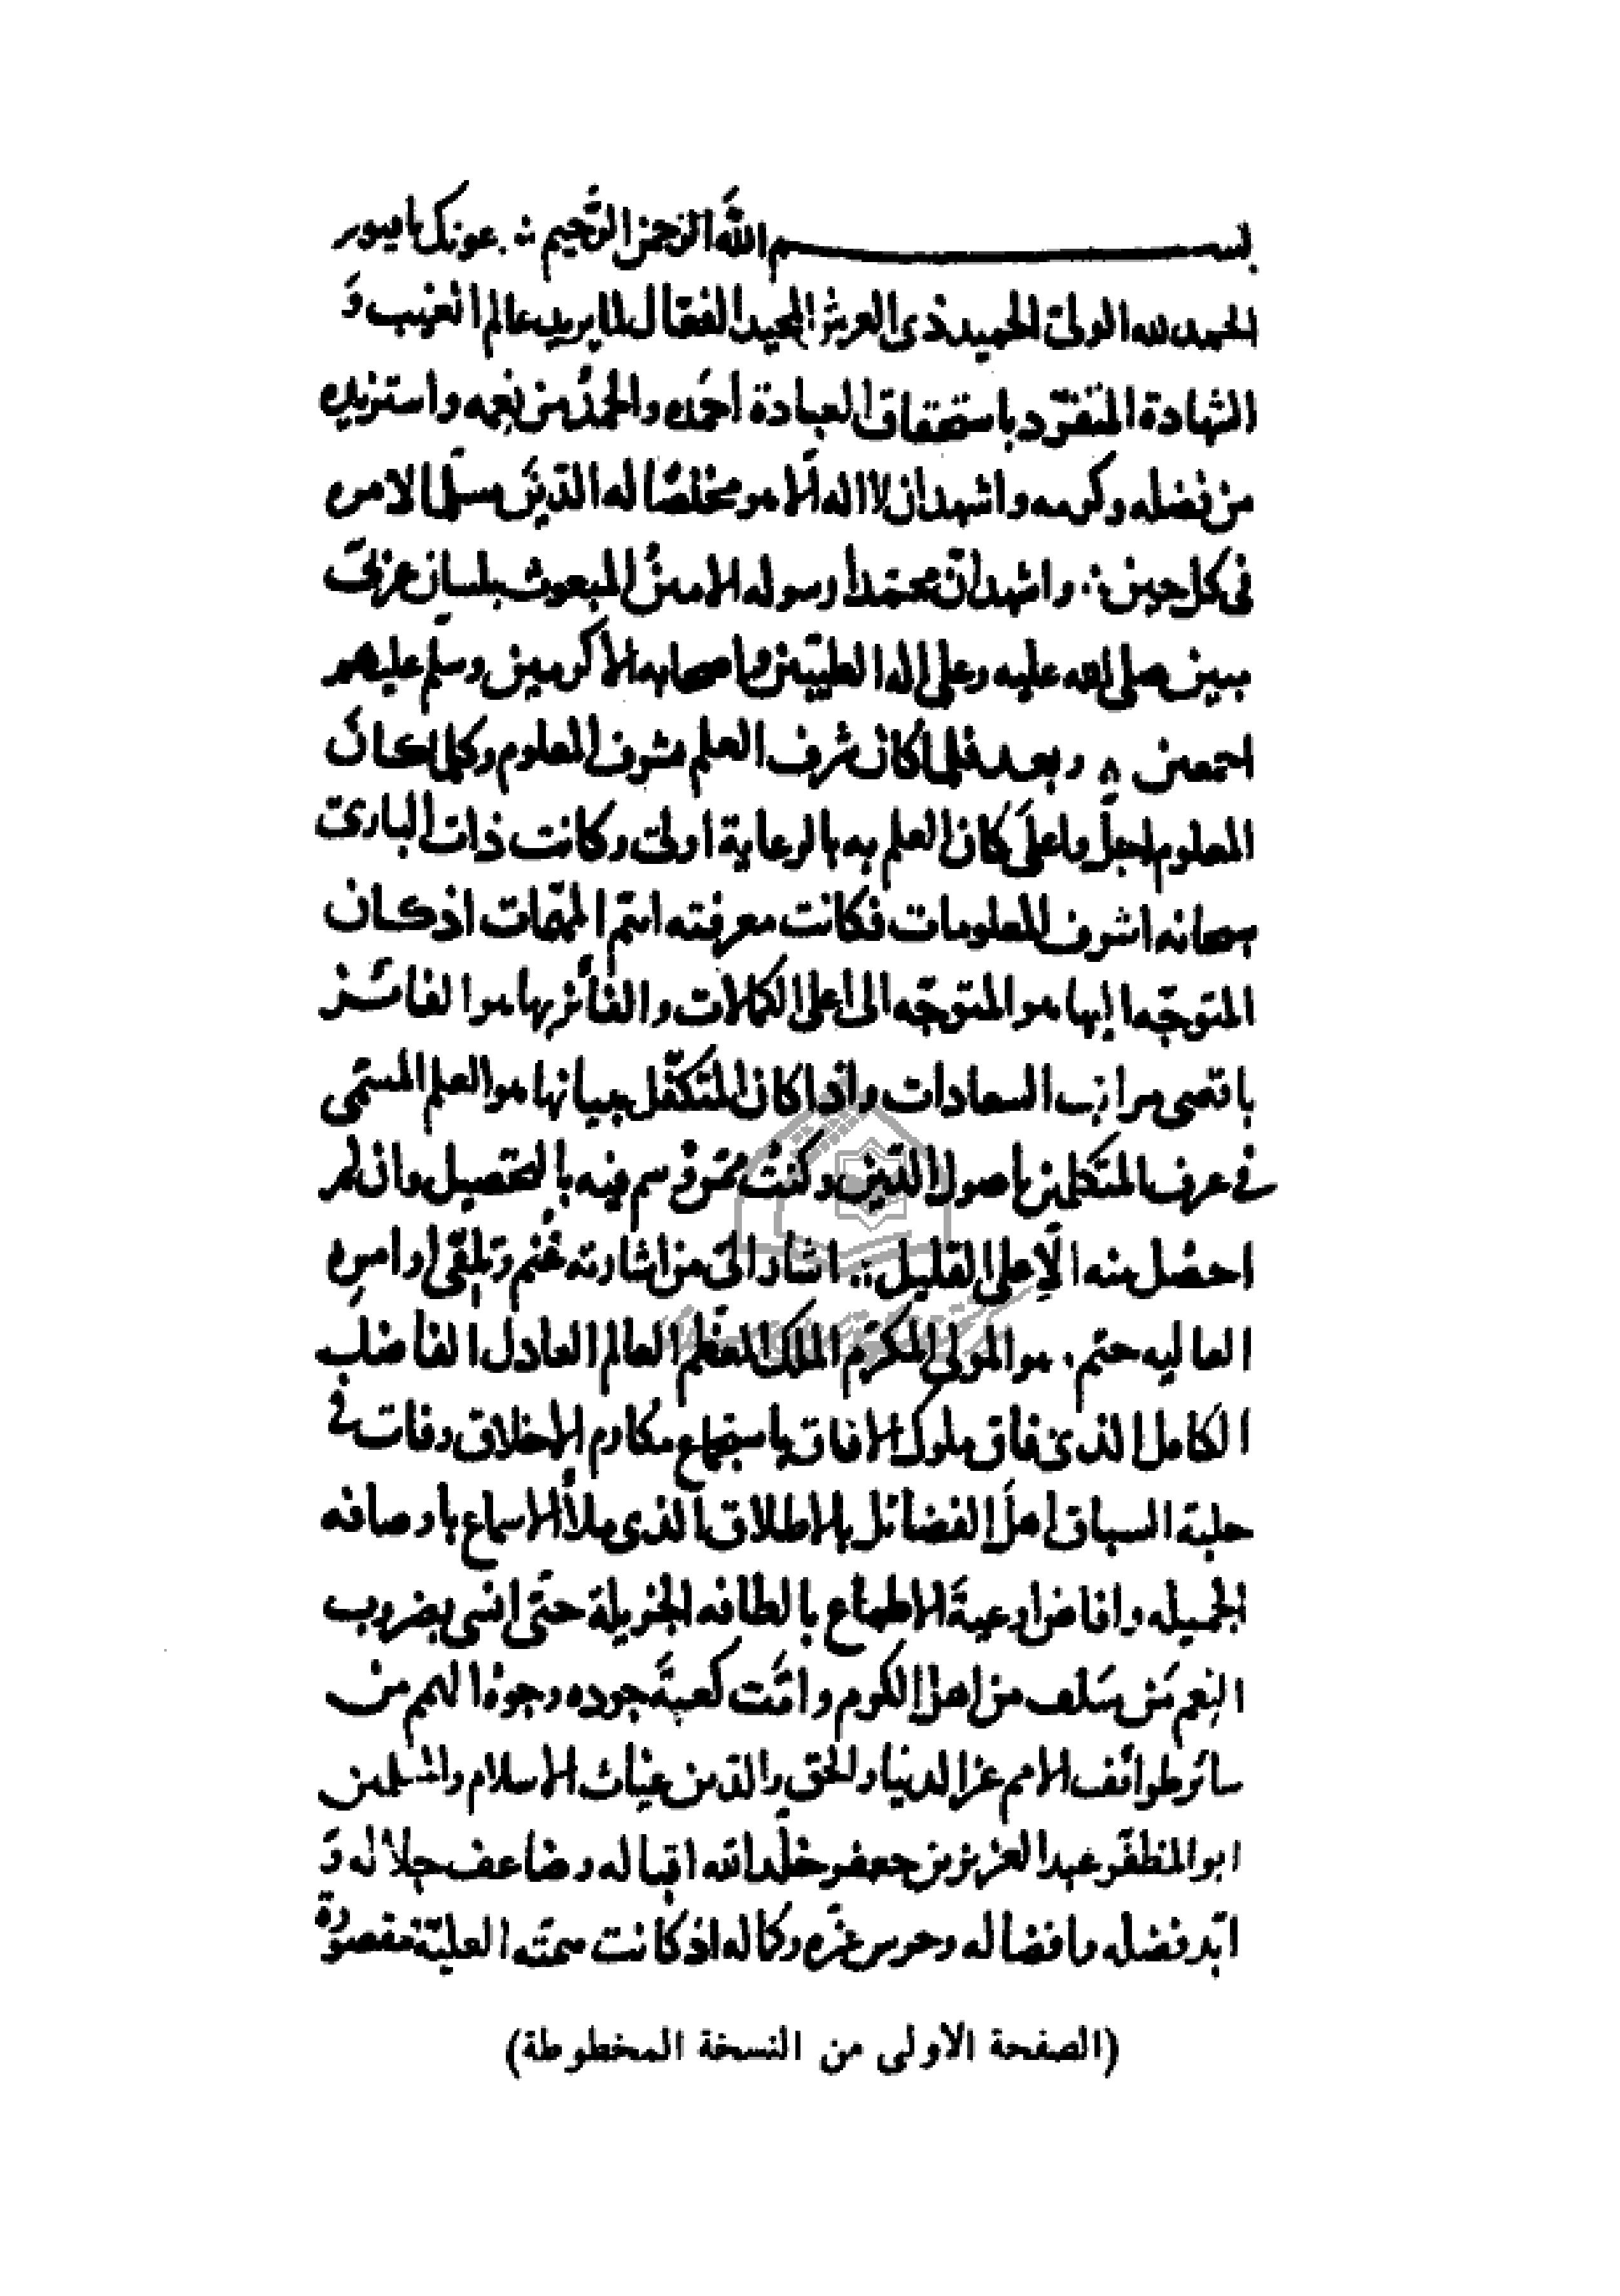 بسم الله الرحمن الرحيم ∴ عونك يا صبور
الحمد لله الولىّ الحميد ذى العرش المجيد الفعّال لما يريد عالم الغيب وَ
الشهادة المتفرّد باستحقاق العبادة احمَده والحمدُ من نِعمه واستزيده
من فضله وكرمه واشهد ان لا اله الّا هو مخلصًا له الدّينَ مسلّما لامره
فى كل حين ∴ واشهد انّ محمّدا رسوله الامينُ المبعوث بلسان عربىّ
مبين صلى الله عليه وعلى اله الطيبّين واصحابه الاكرمين وسلم عليهم
اجمعين ٨ وبعد فلما كان شرف العلم بشرف المعلوم وكلما كان
المعلوم اجلّ واعلىَ كان العلم به بالرعاية اولىَ وكانت ذات البارئ
سبحانه اشرف المعلومات فكانت معرفته اتمّ المهمّات اذ كان
المتوجّه اليها هو المتوجّه الى اعلى الكمالات والفائز بها هو الفائز
باقصى مراتب السعادات واذا كان المتكفّل ببيانها هو العلم المسمّى
فى عرف المتكلمين باصول الدّين وكنتُ ممّن وُسم فيه بالتحصيل وان لم
احصُل منه الّا على القليل ∴ اشار الىّ من اشارته غُنم وتلقّى اوامره
العاليه حتم . هو المولى المكرّم الملك المعظّم العالم العادل الفاضل
الكامل الذى فاق ملوك الافاق باستجماع مكارم الاخلاق وفات فى
حلبة السباق اهلَ الفضائل بالاطلاق الذى ملأ الاسماع باوصافه
الجميله وافاض اوعيةَ الاطماع بالطافه الجزيلة حتّى انسى بضروب
النِعم مَن سَلف من اهل الكرم وامّت كعبةَ جوده وجوهُ الهمم من
سائر طوائف الامم عز الدنيا والحق والدين غياث الاسلام والمسلمين
ابو المظفّر عبد العزيز بن جعفر خلّد الله اقباله وضاعف جلاله وَ
ابّد فضله وافضاله وحرس عزّه وكماله اذ كانت همّته العليّة مقصورة
(الصفحة الاولى من النسخة المخطوطة)